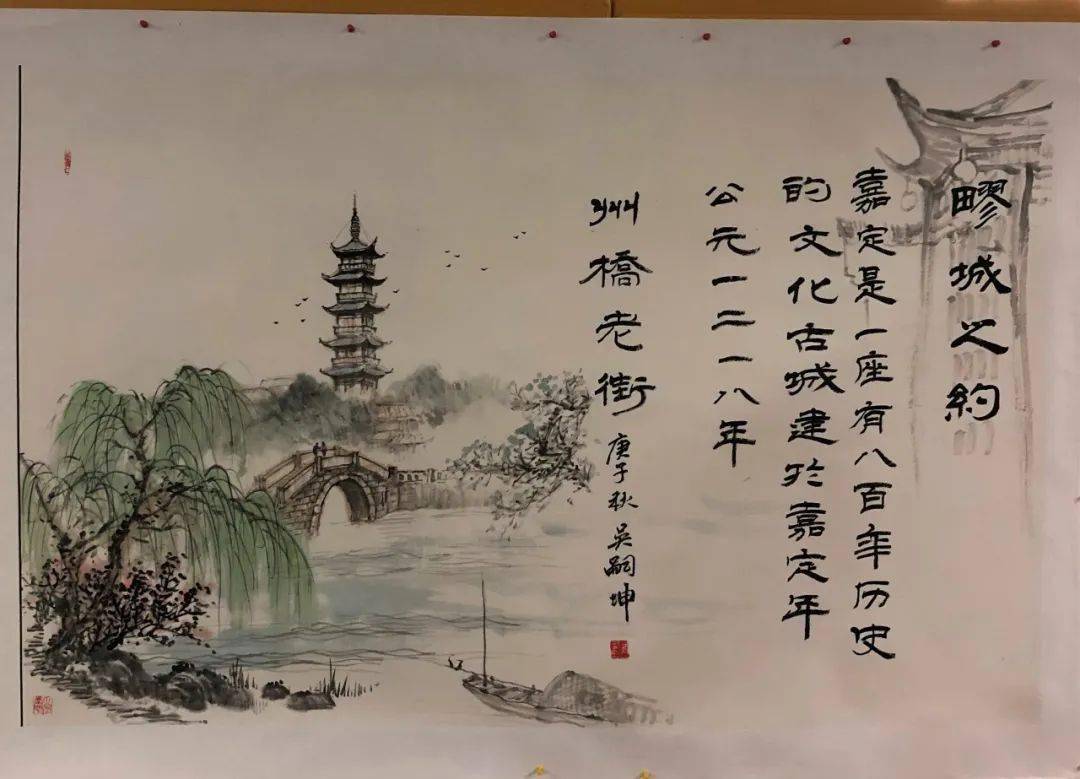 疁城之約
嘉定是一座有八百年历史
的文化古城建於嘉定年
公元一二一八年
州橋老街
庚子秋吴嗣坤